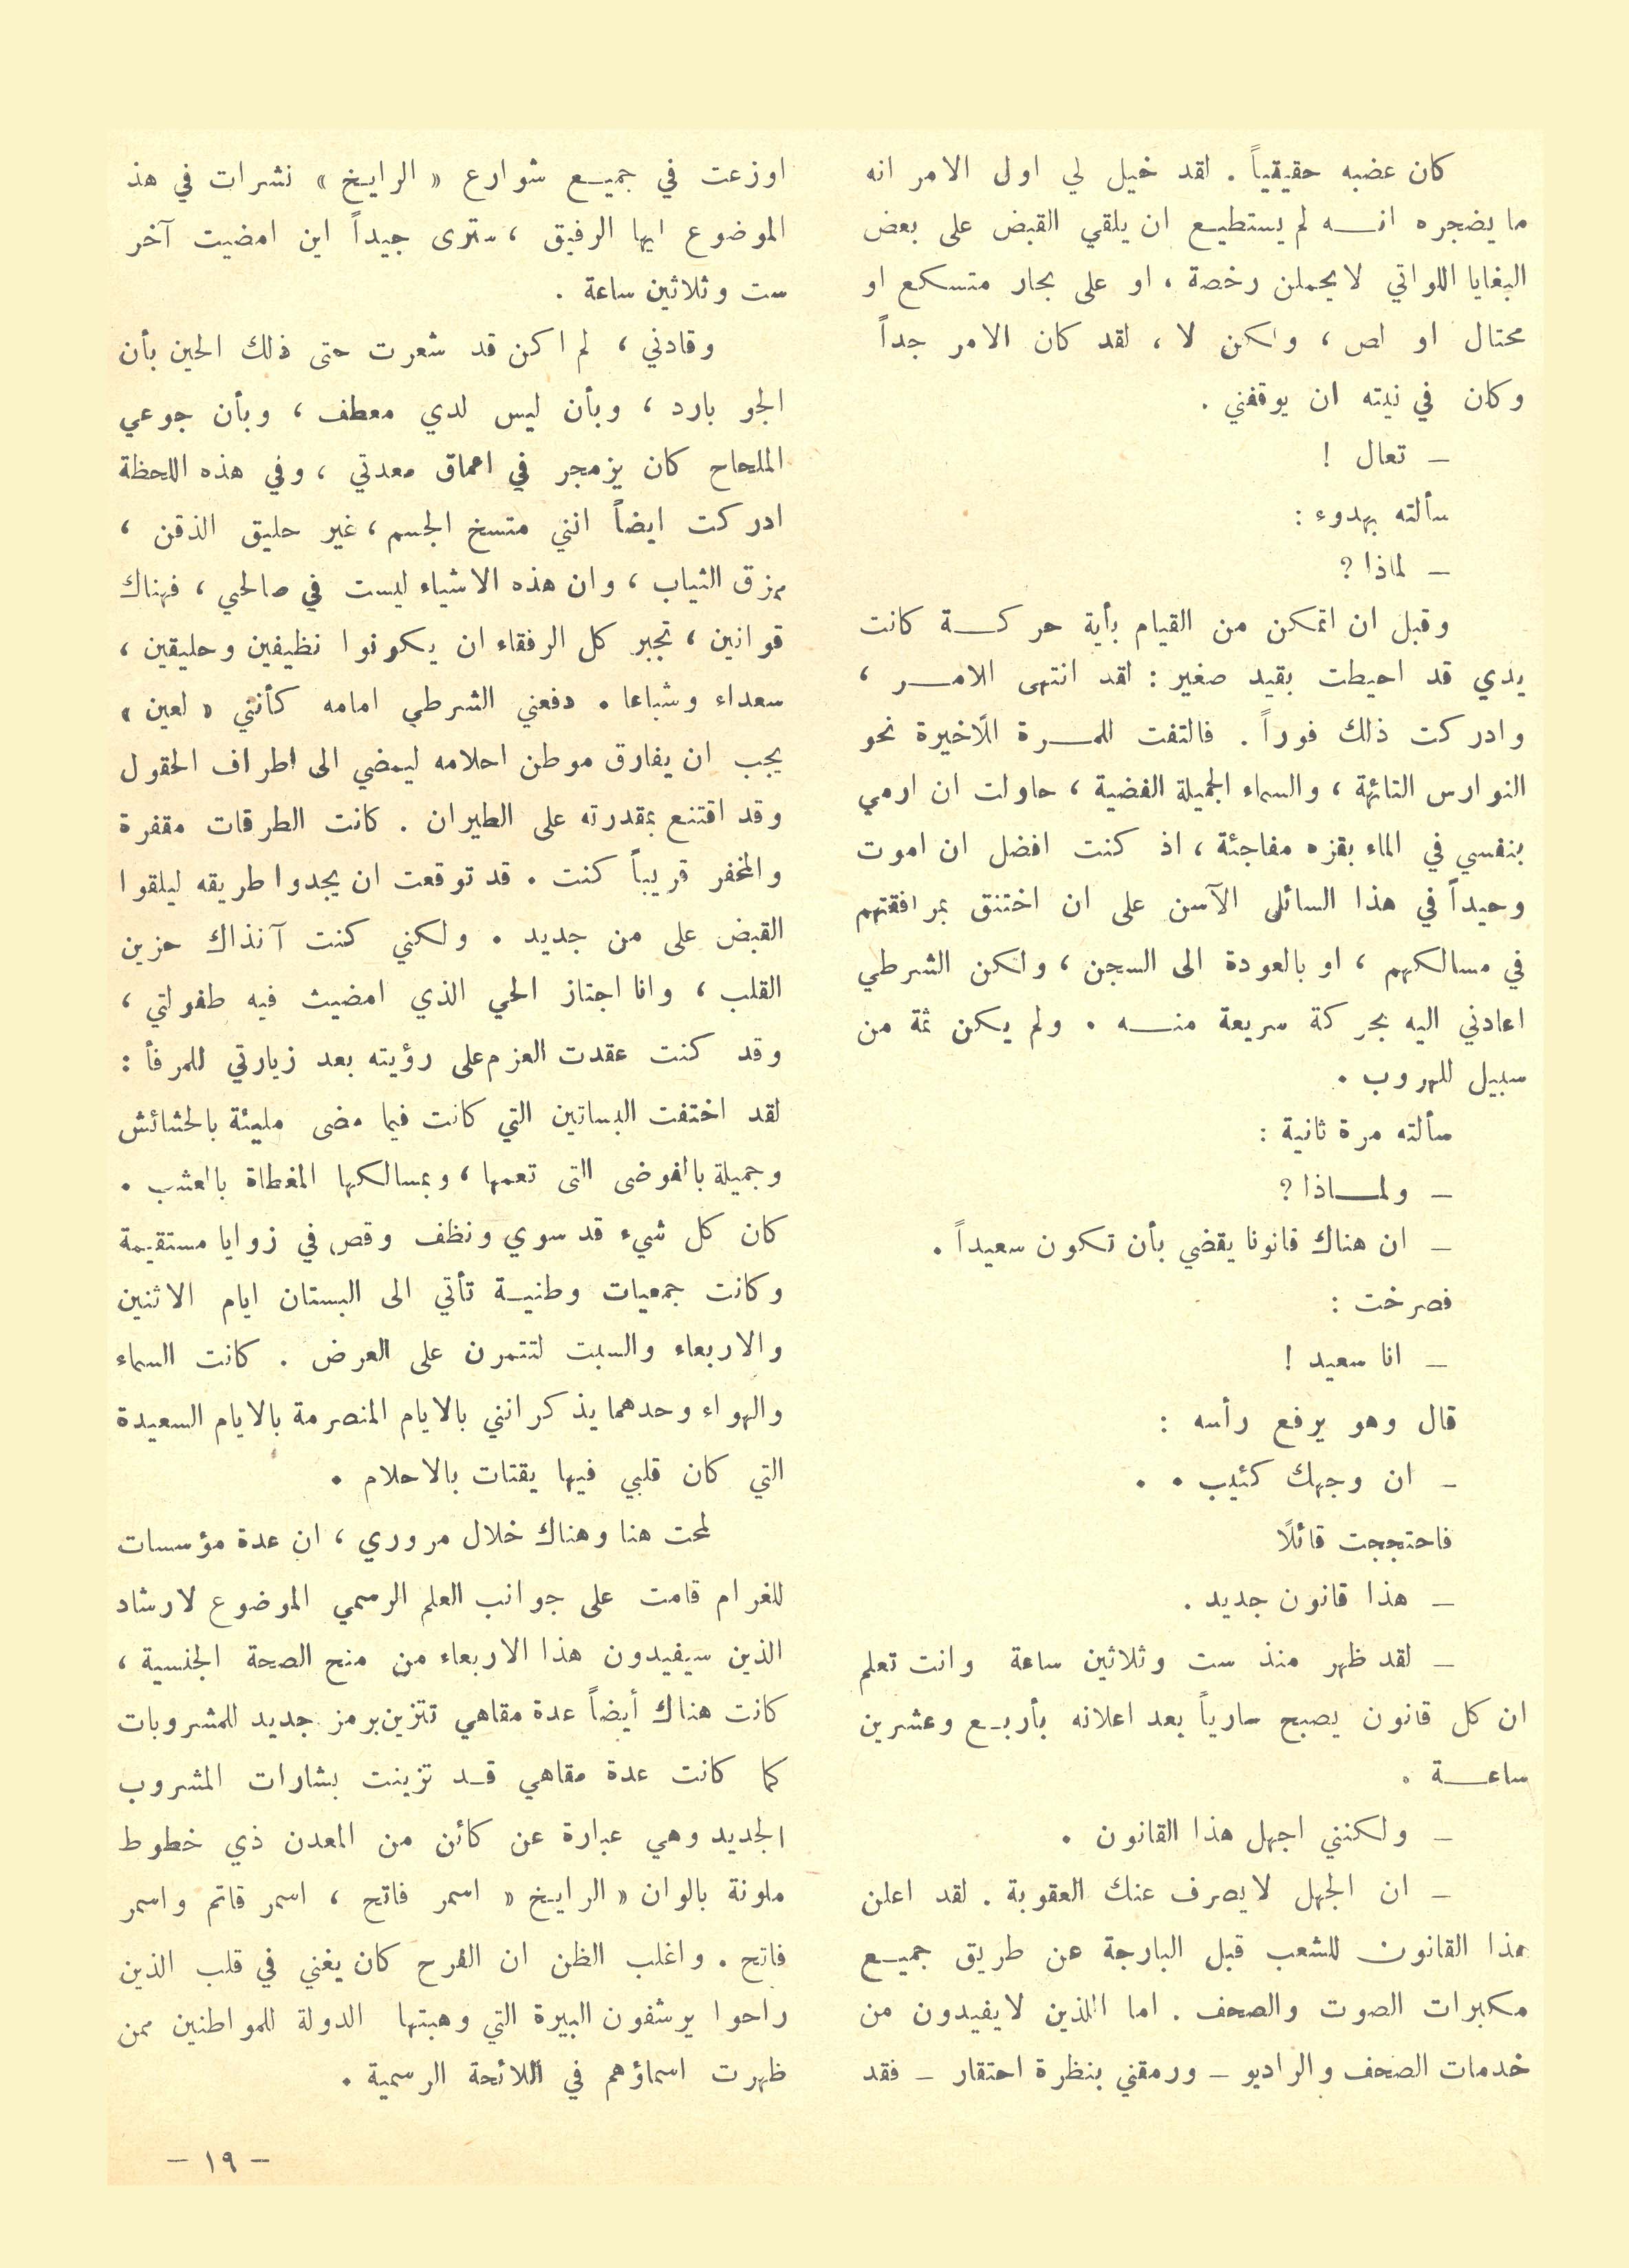 كان غضبه حقيقياً . لقد خيل لي اول الامر انه
ما يضجره انه لم يستطيع ان يلقي القبض على بعض
البغايا اللواتي لا يحملن رخصة ، او على بحار متسكع او
محتال او لص ، ولكن لا ، لقد كان الامر جداً
وكان في نيته ان يوقفني .
ـ تعال !
سألته بهدوء :
ـ لماذا ؟
وقبل ان اتمكن من القيام بأية حركة كانت
يدي قد احيطت بقيد صغير : لقد انتهى الامر ،
وادركت ذلك فوراً . فالتفت للمرة الأخيرة نحو
النوارس التائهة ، والسماء الجميلة الفضية ، حاولت ان ارمي
بنفسي في الماء بقزه مفاجئة ، اذ كنت افضل ان اموت
وحيداً في هذا السائل الآسن على ان اختنق بمرافقتهم
في مسالكهم ، او بالعودة الى السجن ، ولكن الشرطي
اعادني اليه بحركة سريعة منه . ولم يكن ثمة من
سبيل للهروب .
سألته مرة ثانية :
ـ ولماذا ؟
ـ ان هناك قانونا يقضي بأن تكون سعيداً .
فصرخت :
ـ انا سعيد !
قال وهو يرفع رأسه :
ـ ان وجهك كئيب . .
فاحتججت قائلًا
ـ هذا قانون جديد .
ـ لقد ظهر منذ ست وثلاثين ساعة وانت تعلم
ان كل قانون يصبح سارياً بعد اعلانه بأربع وعشرين
ساعة .
ـ ولكنني اجهل هذا القانون .
ـ ان الجهل لا يصرف عنك العقوبة . لقد اعلن
هذا القانون للشعب قبل البارحة عن طريق جميع
مكبرات الصوت والصحف . اما اللذين لا يفيدون من
خدمات الصحف والراديو ـ ورمقني بنظرة احتقار ـ فقد
اوزعت في جميع شوارع « الرايخ » نشرات في هذ
الموضوع ايها الرفيق ، سترى جيداً اين امضيت آخر
ست وثلاثين ساعة .
وقادني ، لم اكن قد شعرت حتى ذلك الحين بأن
الجو بارد ، وبأن ليس لدي معطف ، وبأن جوعي
الملحاح كان يزمجر في اعماق معدتي ، وفي هذه اللحظة
ادركت ايضاً انني متسخ الجسم ، غير حليق الذقن ،
ممزق الثياب ، وان هذه الاشياء ليست في صالحي ، فهناك
قوانين ، تجبر كل الرفقاء ان يكونوا نظيفين وحليقين ،
سعداء وشباعا . دفعني الشرطي امامه كأنني « لعين »
يجب ان يفارق موطن احلامه ليمضي الى اطراف الحقول
وقد اقتنع بمقدرته على الطيران . كانت الطرقات مقفرة
والمخفر قريباً كنت . قد توقعت ان يجدوا طريقه ليلقوا
القبض على من جديد . ولكني كنت آنذاك حزين
القلب ، وانا اجتاز الحي الذي امضيت فيه طفولتي ،
وقد كنت عقدت العزم على رؤيته بعد زيارتي للمرفأ :
لقد اختفت البساتين التي كانت فيما مضى مليئة بالحشائش
وجميلة بالفوضى التى تعمها ، وبمسالكها المغطاة بالعشب .
كان كل شيء قد سوي ونظف وقص في زوايا مستقيمة
وكانت جمعيات وطنية تأتي الى البستان ايام الاثنين
والاربعاء والسبت لتتمرن على العرض . كانت السماء
والهواء وحدهما يذكرانني بالايام المنصرمة بالايام السعيدة
التي كان قلبي فيها يقتات بالاحلام .
لمحت هنا وهناك خلال مروري ، ان عدة مؤسسات
للغرام قامت على جوانب العلم الرسمي الموضوع لارشاد
الذين سيفيدون هذا الاربعاء من منح الصحة الجنسية ،
كانت هناك أيضاً عدة مقاهي تتزين برمز جديد للمشروبات
كما كانت عدة مقاهي قد تزينت بشارات المشروب
الجديد وهي عبارة عن كائن من المعدن ذي خطوط
ملونة بالوان « الرايخ » اسمر فاتح ، اسمر قاتم واسمر
فاتح . واغلب الظن ان الفرح كان يغني في قلب الذين
راحوا يرشفون البيرة التي وهبتها الدولة للمواطنين ممن
ظهرت اسماؤهم في اللائحة الرسمية .
ـ ١٩ ـ